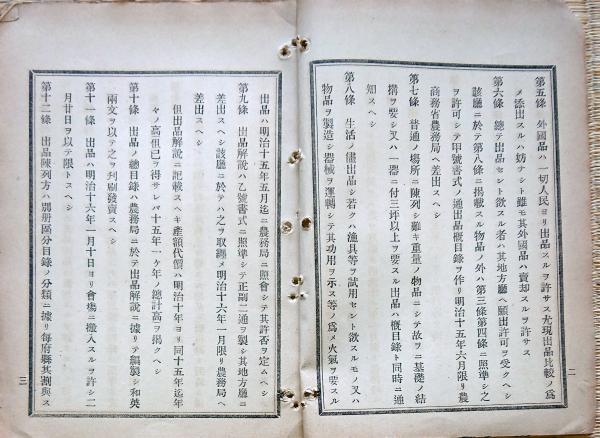 第五條 外國品ハ一切人民ヨリ出品スルヲ許サス尤現出品比較ノ爲
メ添出スルハ妨ナシト雖モ其外國品ハ賣却スルヲ許サス
第六條 總テ出品セント欲スル者ハ其地方廳ヘ願出許可ヲ受クヘシ
該廳ニ於テ第八條ニ揭載スル物品ノ外ハ第三條第四條ニ照準シ之
ヲ許可シテ甲號書式ノ通出品槪目錄ヲ作リ明治十五年六月限リ農
商務省農務局ヘ差出スヘシ
第七條 普通ノ場所ニ陳列シ難キ重量ノ物品ニシテ故ヲニ基礎ノ結
搆ヲ要シ又ハ一器ニ付三坪以上ヲ要スル出品ハ槪目錄ト同時ニ通
知スヘシ
第八條 生活ノ儘出品シ若クハ漁具等ヲ試用セント欲スルモノ又ハ
物品ヲ製造シ器械ヲ運轉シテ其功用ヲ示ス等ノ爲メ火氣ヲ要スル
二
出品ハ明治十五年五月迄ニ農務局ニ照會シテ其許否ヲ定ムヘシ
第九條 出品解說ハ乙號書式ニ照準シテ正副二通ヲ製シ其地方廳ニ
差出スヘシ該廳ニ於テハ之ヲ取纒メ明治十六年一月限リ農務局ヘ
差出スヘシ
但出品解說ニ記載スヘキ產額代價ハ明治十年ヨリ同十五年迄年
々ノ高但已ヲ得サレバ十五年一ヶ年ノ總計高ヲ揭クヘシ
第十條 出品ノ總目錄ハ農務局ニ於テ出品解說ニ據リテ編製シ和英
兩文ヲ以テ之ヲ刋刷發賣スヘシ
第十一條 出品ハ明治十六年一月十日ヨリ會塲ニ搬入スルヲ許シ二
月廿日ヲ以テ限トスヘシ
第十二條 出品陳列方ハ別册區分目錄ノ分類ニ據リ每府縣其割與ス
三